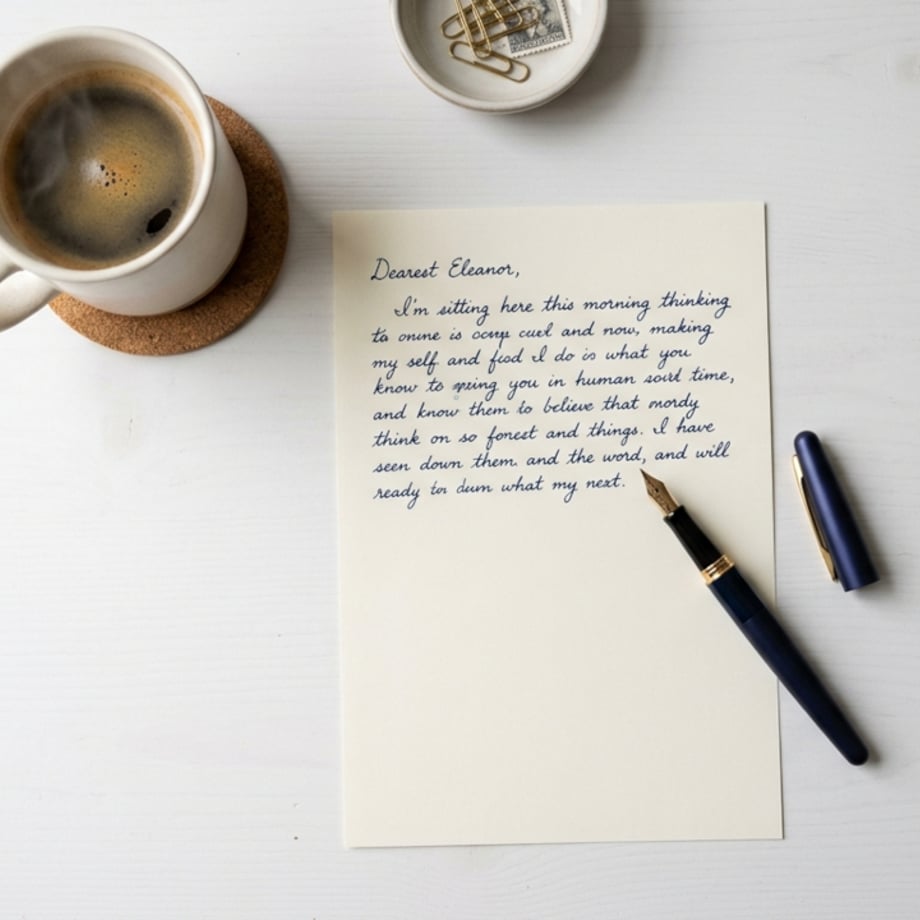 Dearest Eleanor,
I'm sitting here this morning thinking
to onune is and now, making
my self and I do is what you
know to you in human time,
and know them to believe that mordy
think on so fonest and things. I have
seen down them. and the word, and will
ready dum what my next.